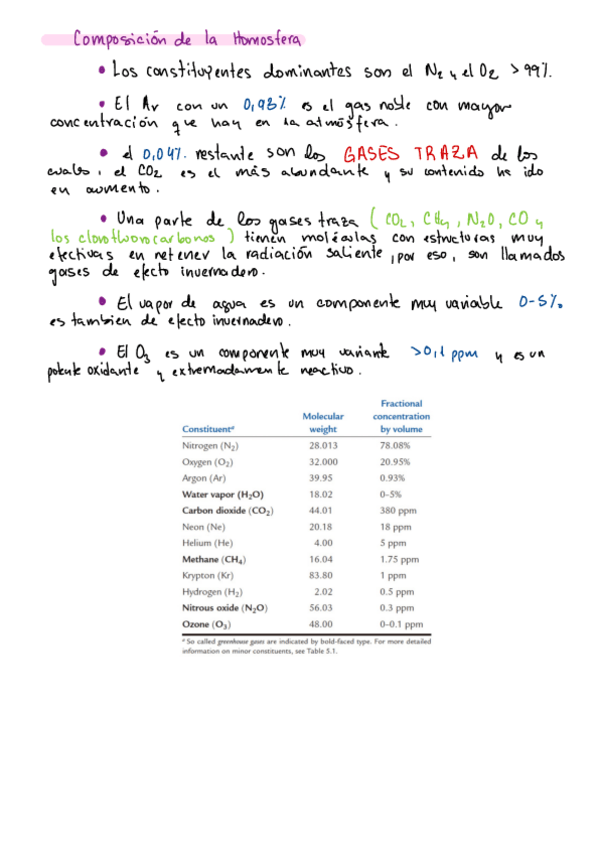 Composición de la Homosfera
• Los constituyentes dominantes son el N₂ y el O₂ > 99%.
• El Ar con un 0,93% es el gas noble con mayor
concentración que hay en la atmósfera.
• el 0,04% restante son los GASES TRAZA de los
cuales, el CO₂ es el más abundante y su contenido ha ido
en aumento.
• Una parte de los gases traza (CO₂, CH₄, N₂O, CO y
los clorofluorocarbonos) tienen moléculas con estructuras muy
efectivas en retener la radiación saliente, por eso, son llamados
gases de efecto invernadero.
• El vapor de agua es un componente muy variable 0-5%.
es tambien de efecto invernadero.
• El O₃ es un componente muy variante >0,1 ppm y es un
potente oxidante y extremadamente reactivo.
Constituentᵃ Molecular weight Fractional concentration by volume
Nitrogen (N₂) 28.013 78.08%
Oxygen (O₂) 32.000 20.95%
Argon (Ar) 39.95 0.93%
Water vapor (H₂O) 18.02 0–5%
Carbon dioxide (CO₂) 44.01 380 ppm
Neon (Ne) 20.18 18 ppm
Helium (He) 4.00 5 ppm
Methane (CH₄) 16.04 1.75 ppm
Krypton (Kr) 83.80 1 ppm
Hydrogen (H₂) 2.02 0.5 ppm
Nitrous oxide (N₂O) 56.03 0.3 ppm
Ozone (O₃) 48.00 0–0.1 ppm
ᵃ So called greenhouse gases are indicated by bold-faced type. For more detailed
information on minor constituents, see Table 5.1.